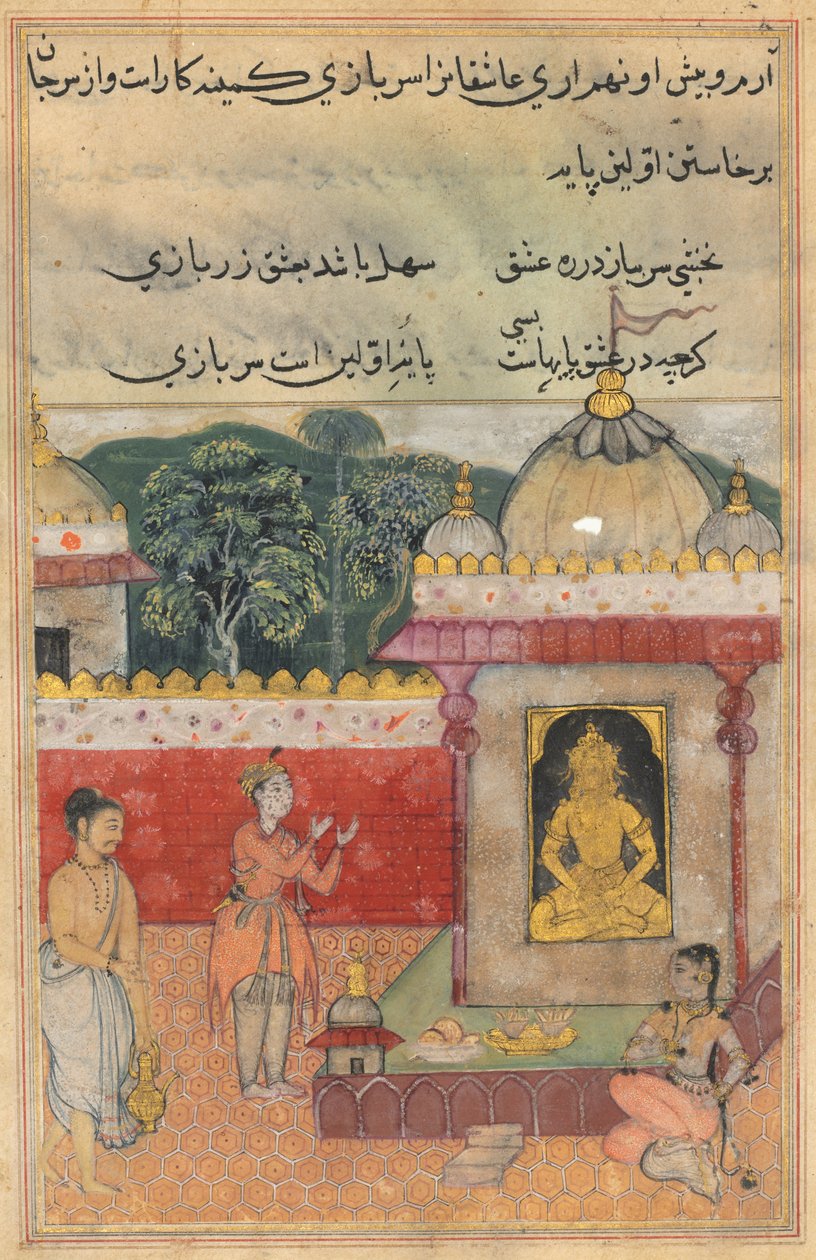 آرم و بیش او نهم اری عاشقانرا سربازی کمینه کار است و از سر جان
برخاستن اوّلین پایه
نخشبی سر بباز در ره عشق سهل باشد بعشق زر بازی
کرچه در عشق پایهاست بسی پایهٔ اوّلین است سربازی